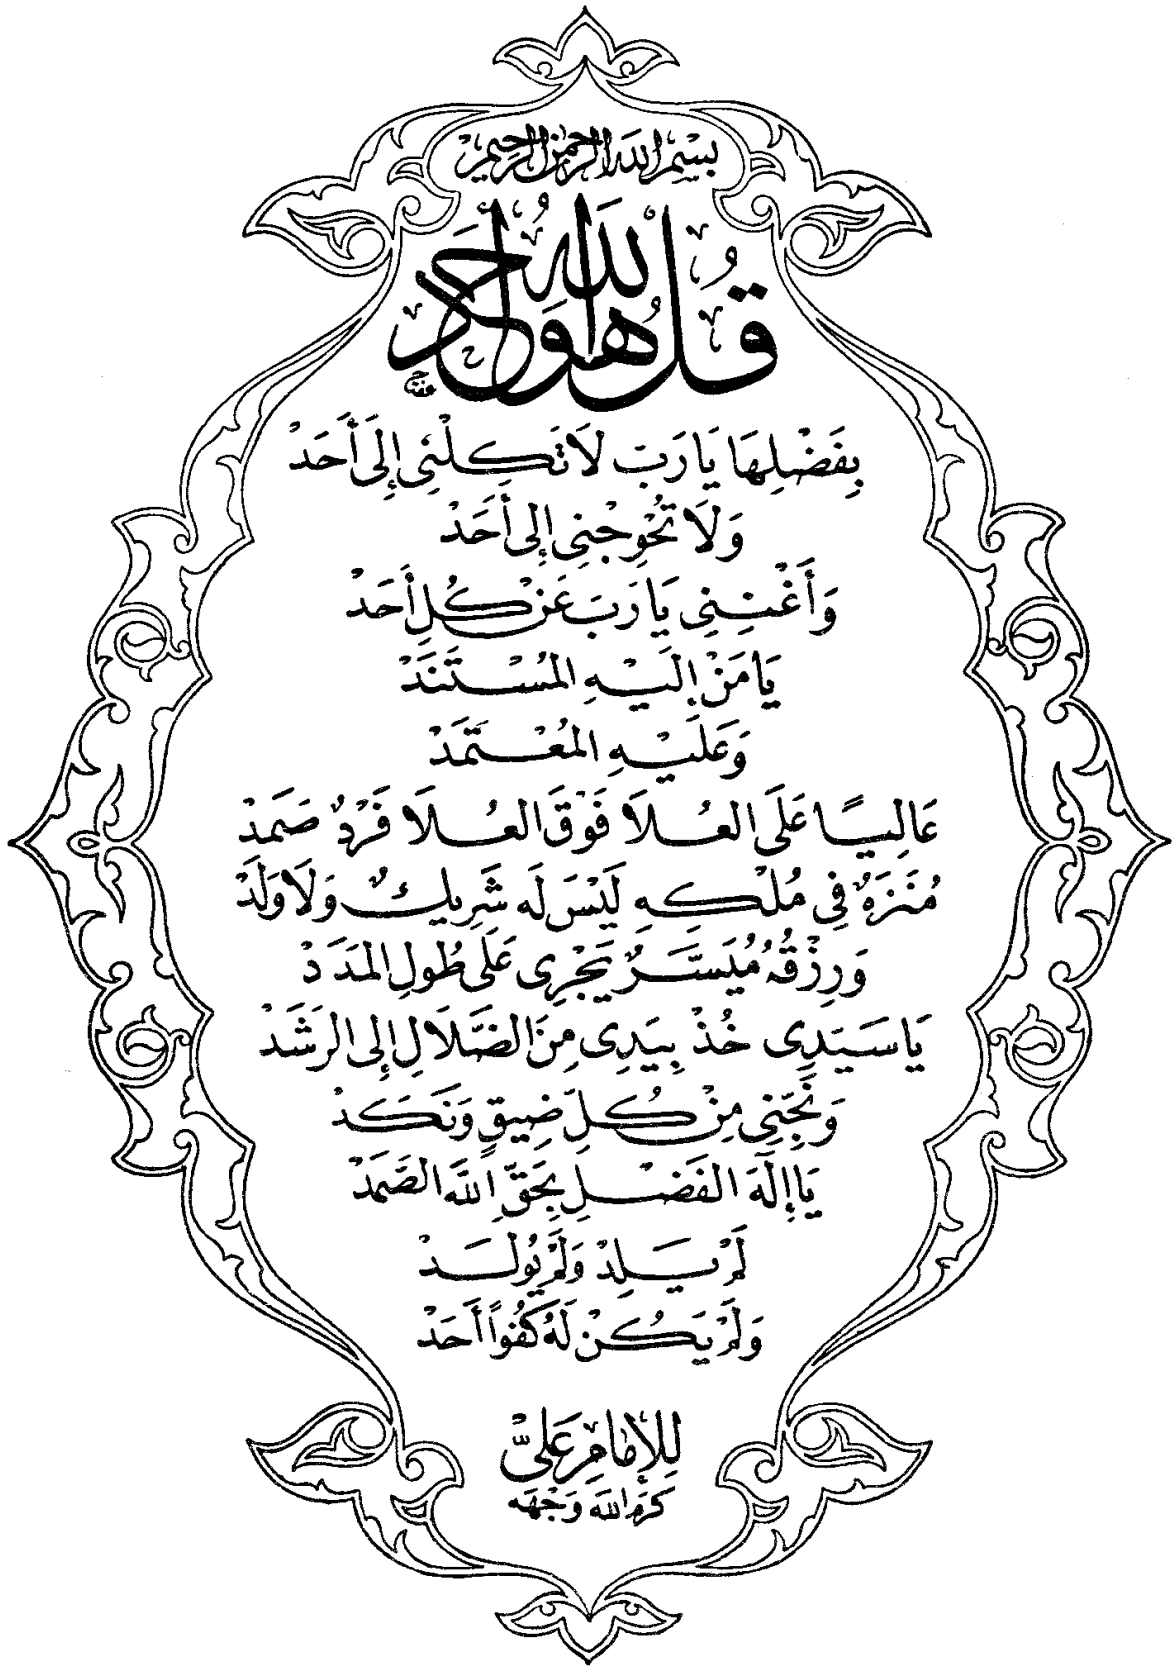 بِسْمِ اللهِ الرَّحْمٰنِ الرَّحِيمِ
قُلْ هُوَ اللهُ أَحَدٌ
بِفَضْلِهَا يَا رَبِّ لَا تَكِلْنِي إِلَى أَحَدْ
وَلَا تُحْوِجْنِي إِلَى أَحَدْ
وَأَغْنِنِي يَا رَبِّ عَنْ كُلِّ أَحَدْ
يَا مَنْ إِلَيْهِ الْمُسْتَنَدْ
وَعَلَيْهِ الْمُعْتَمَدْ
عَالِيًا عَلَى الْعُلَا فَوْقَ الْعُلَا فَرْدٌ صَمَدْ
مُنَزَّهٌ فِي مُلْكِهِ لَيْسَ لَه شَرِيكٌ وَلَا وَلَدْ
وَرِزْقُهُ مُيَسَّرٌ يَجْرِي عَلَى طُولِ الْمَدَدْ
يَا سَيِّدِي خُذْ بِيَدِي مِنَ الضَّلَالِ إِلَى الرَّشَدْ
وَنَجِّنِي مِنْ كُلِّ ضِيقٍ وَنَكَدْ
يَا إِلَهَ الْفَضْلِ بِحَقِّ اللهِ الصَّمَدْ
لَمْ يَلِدْ وَلَمْ يُولَدْ
وَلَمْ يَكُنْ لَهُ كُفُوًا أَحَدْ
لِلْإِمَامِ عَلِيٍّ
كَرَّمَ اللهُ وَجْهَه